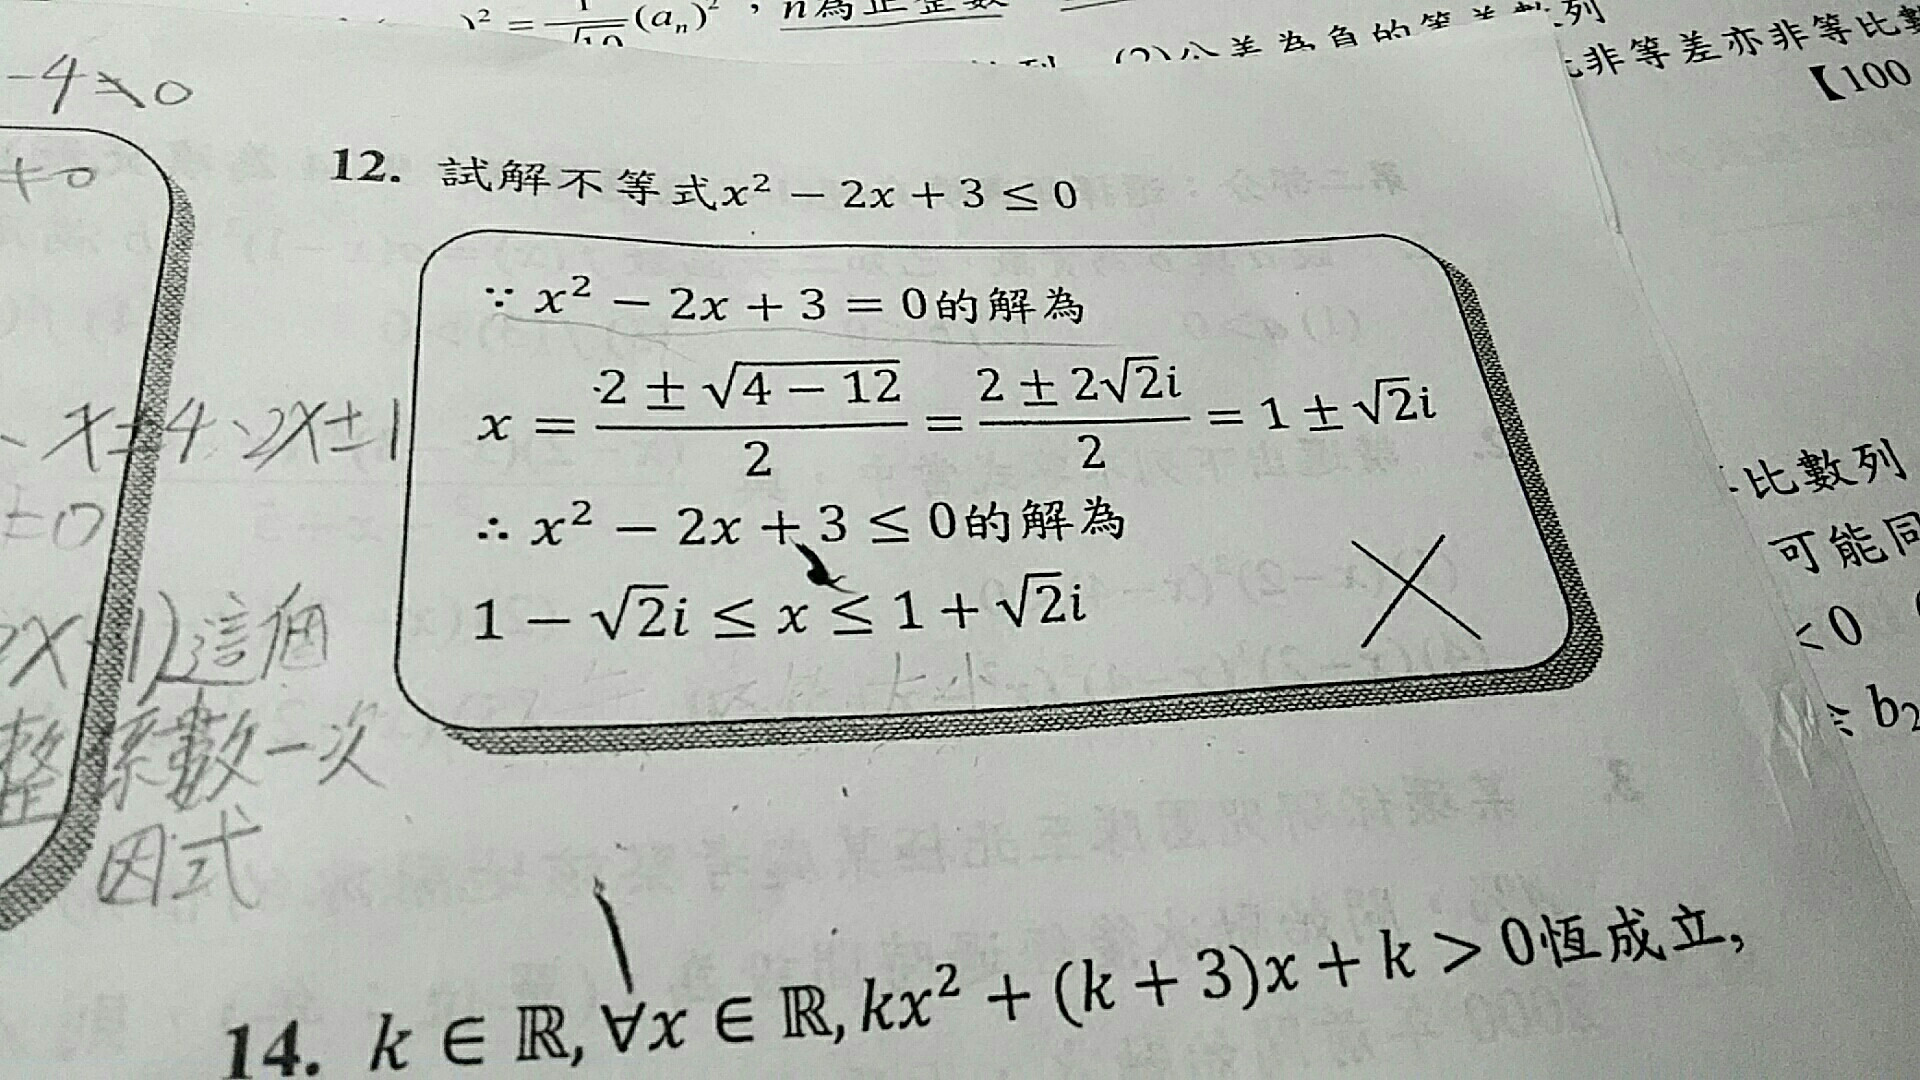 )² = 1/√10 (aₙ)², n為正整數
(2)公差為負的等差數列
非等差亦非等比數
【100
-4≯0
≠0
12. 試解不等式x² − 2x + 3 ≤ 0
∵ x² − 2x + 3 = 0的解為
x = (2 ± √(4 − 12))/2 = (2 ± 2√2i)/2 = 1 ± √2i
∴ x² − 2x + 3 ≤ 0的解為
1 − √2i ≤ x ≤ 1 + √2i
、x±4、2x±1
±0
這個
整係數一次
因式
比數列
可能同
<0
b₂
14. k ∈ ℝ, ∀x ∈ ℝ, kx² + (k + 3)x + k > 0恆成立,